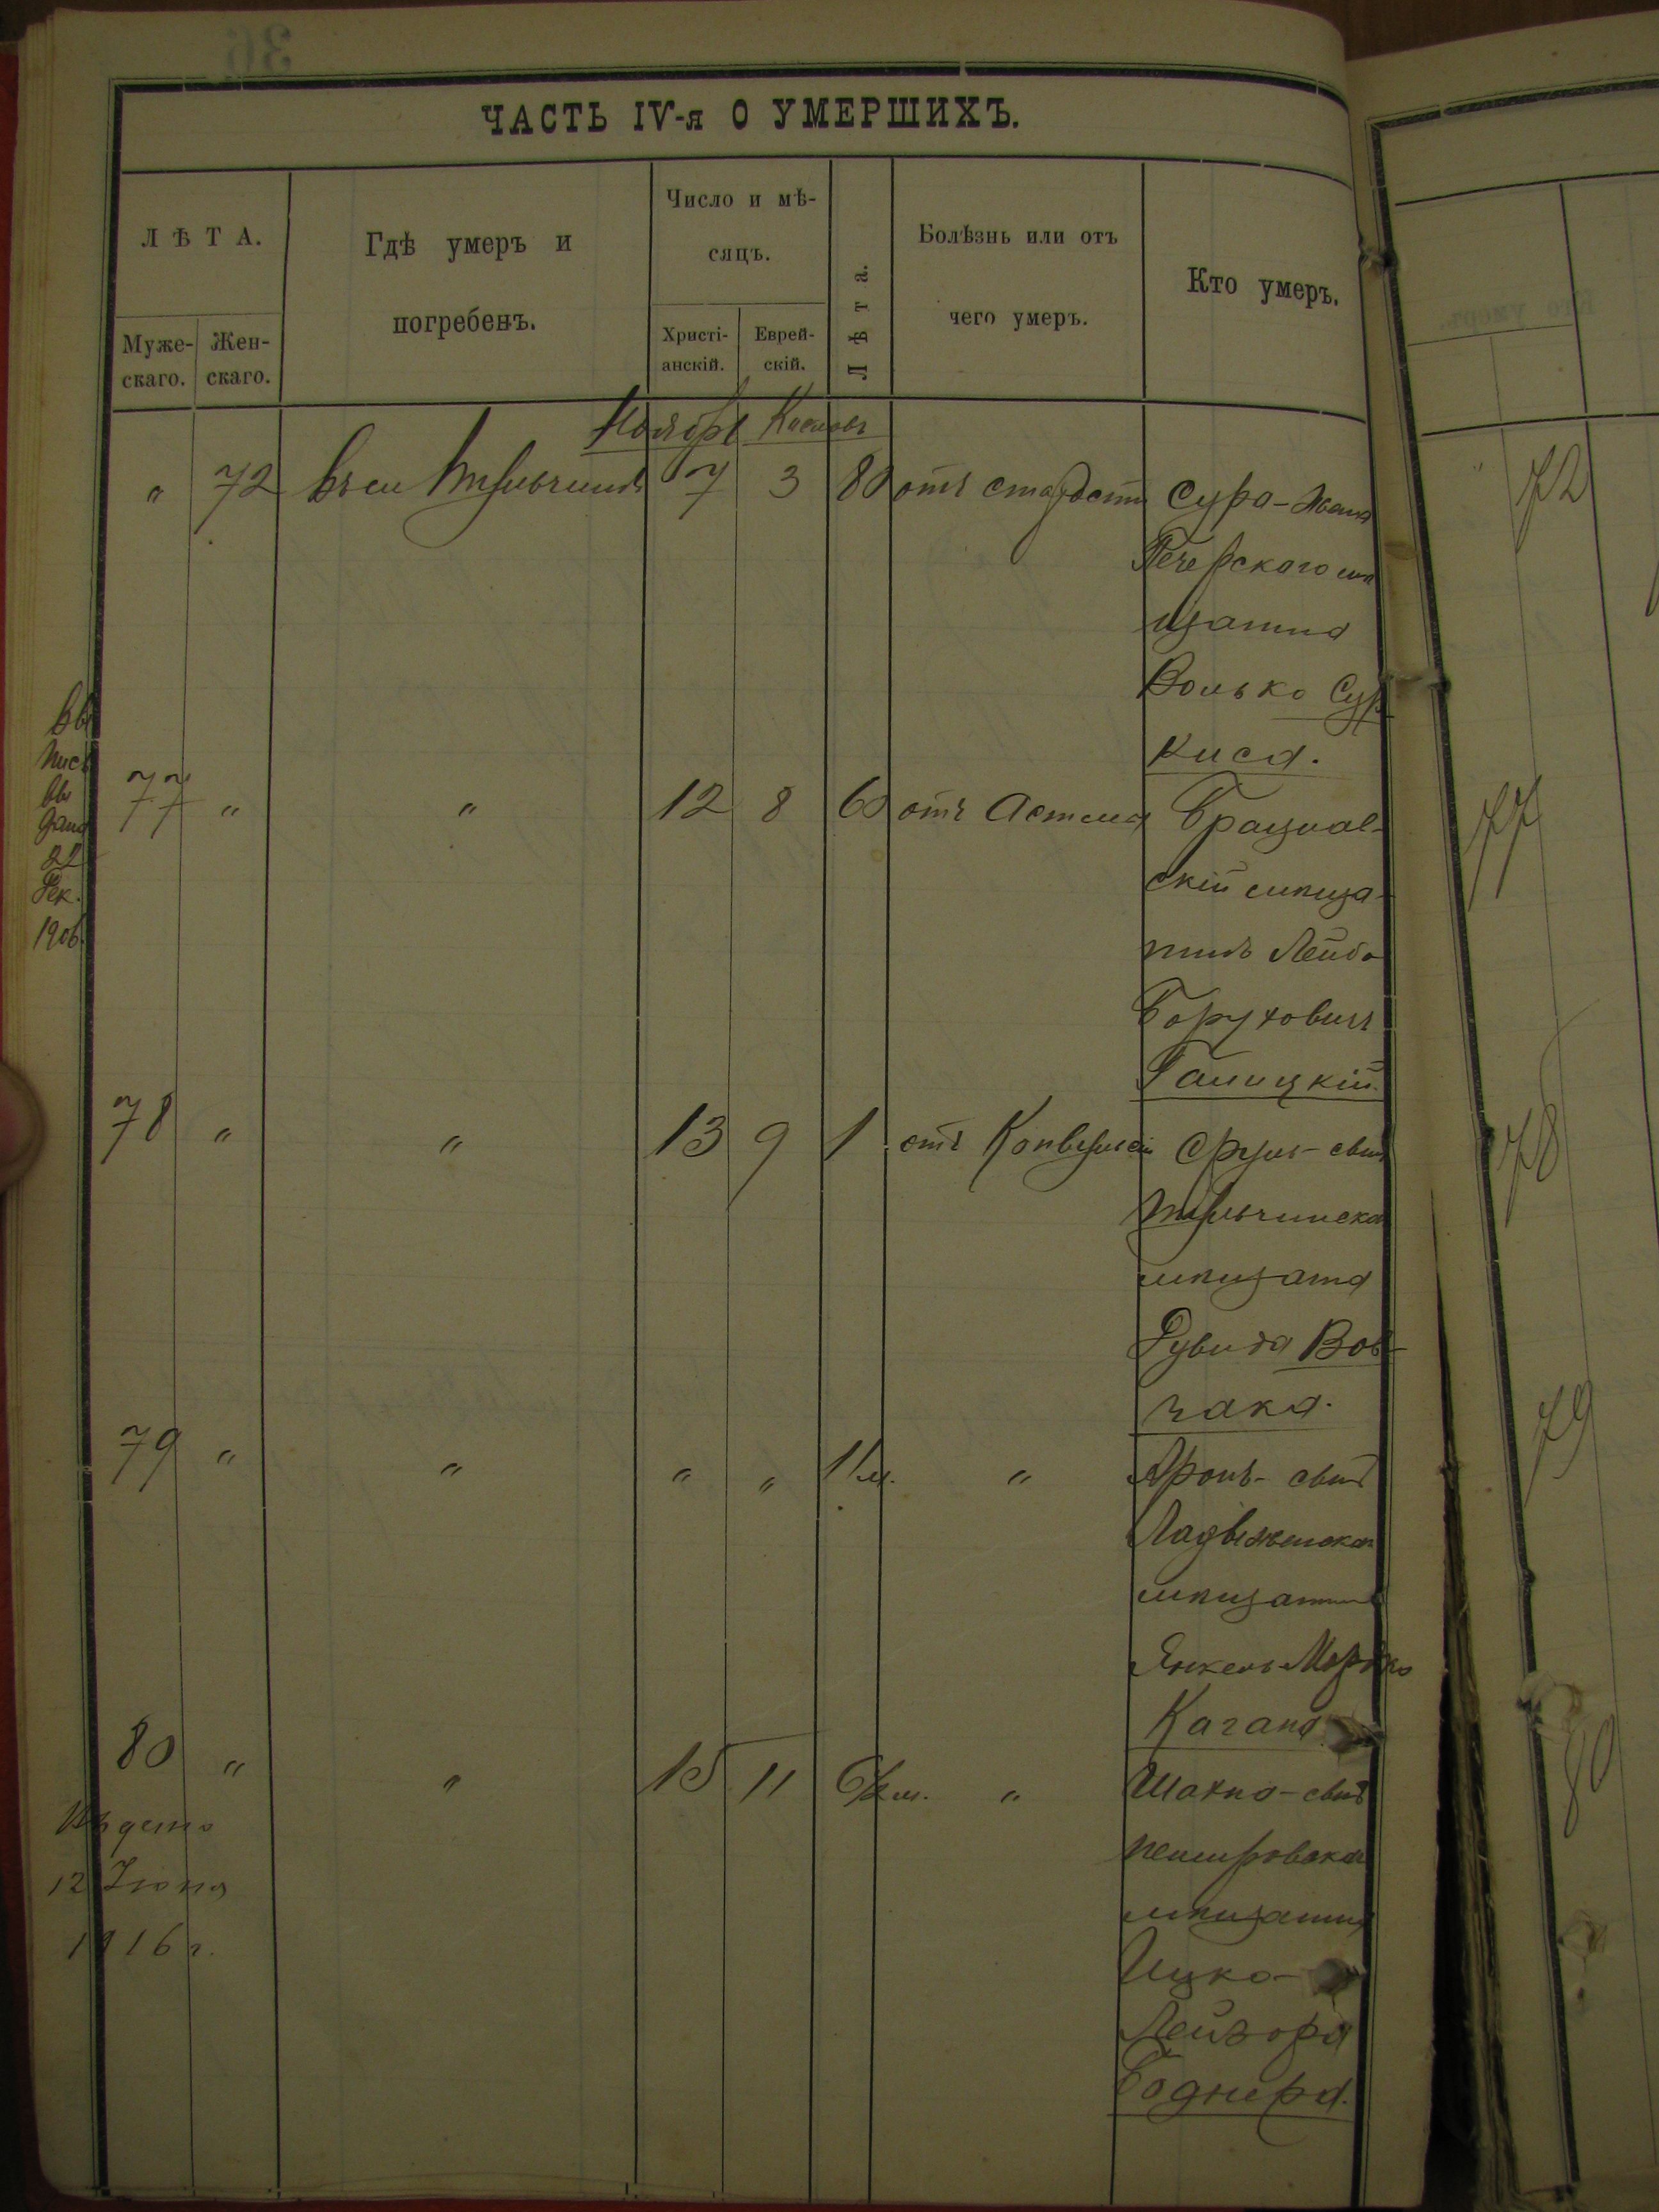 ЧАСТЬ IV-я О УМЕРШИХЪ.
ЛѢТА.
Муже-
скаго.
Жен-
скаго.
Гдѣ умеръ и
погребенъ.
Число и мѣ-
сяцъ.
Христі-
анскій.
Еврей-
скій.
Лѣта.
Болѣзнь или отъ
чего умеръ.
Кто умеръ.
Ноября Кислевъ
" 72 7 3 80 отъ старости Сура-жена
Печерского
щанина
Волько Сур
киса.
77 " " 12 8 60 отъ Астма Брацлав-
скій мѣща-
нинъ Лейба
Борухович
Галицкій.
78 " " 13 9 1 отъ Конвульсіи Сруль-сынъ
Тульчинска
мѣщана
Дувида Вов-
чака.
79 " " " " 11 м. " Аронъ-сынъ
мѣщанина
Янкель-Мордко
Кагана.
80 " " 15 11 6½ м. " Шахно-сынъ
немировска
мѣщанина
Ицко-
Лейзора
Боднера.
Вы
пись
вы
дана
22
Дек.
1906.
Выдано
12 Іюня
1916 г.
" 72
77
78
79
80